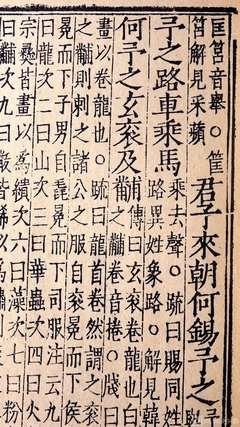 匡筥音舉○筐
筥解見采蘋
君子來朝何錫予之
予
予之路車乘馬
乘去聲○疏曰賜同姓
路異姓象路○解見韓
何予之玄袞及
甫傳曰玄袞卷龍也白
黼卷音捲○牋曰
畫以卷龍也○疏曰龍首卷然謂之袞
之黼則刺之諸公之服自袞冕而下侯
冕而下子男自毳冕而下司服注云九
曰龍次二曰山次三曰華蟲次四曰火
宗彝皆畫以為繢次六曰藻次七曰粉
曰黼次九曰黻皆絺以為繡